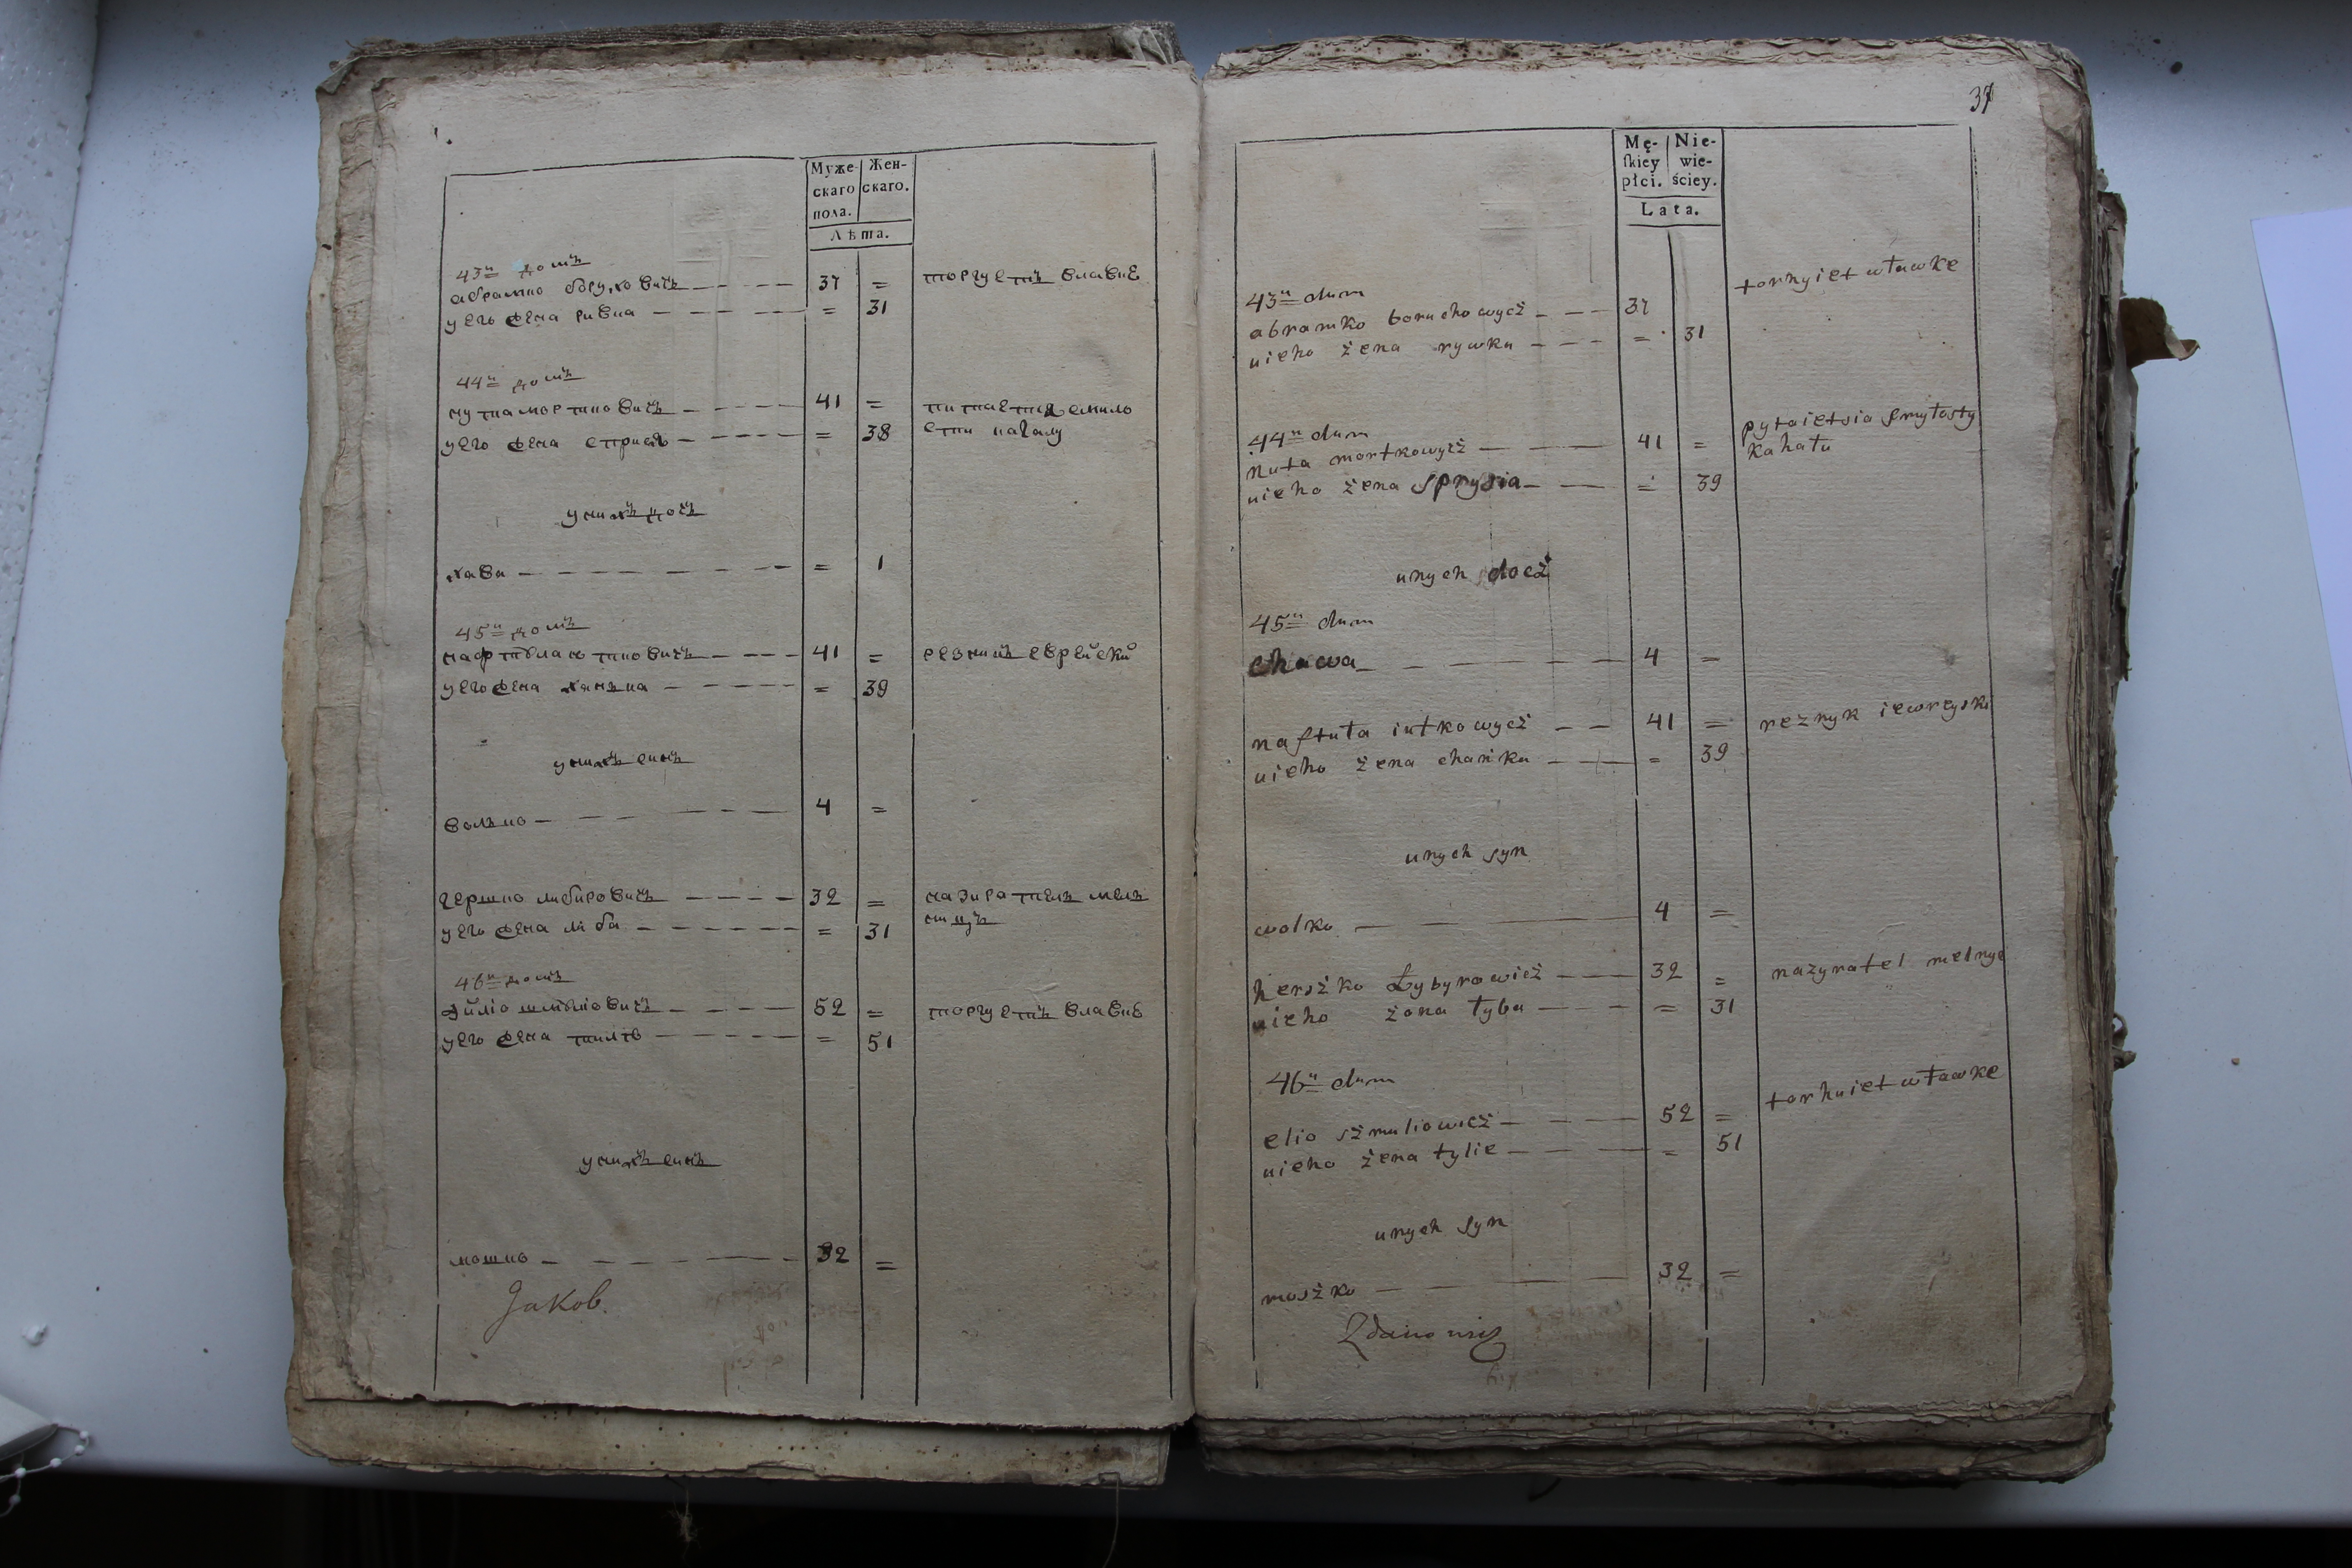 Муже-
скаго
пола.
Жен-
скаго.
Лѣта.
43й домъ
абрамко боруховичъ 37 = торгуетъ влавкѣ
уего жена ривка = 31
44й домъ
нута мортковичъ 41 = питается смило
уего жена сприся = 38 сти кагалу
унихъ дочъ
хава = 1
45й домъ
нафтѣла ютковичъ 41 = резникъ еврейскій
уего жена ханька = 39
унихъ синъ
волько 4 =
гершко либировичъ 32 = назирателъ мелъ
уего жена либа = 31 ницъ
46й домъ
эйліо шмѣлювичъ 52 = торгуетъ влавкѣ
уего жена тилѣ = 51
унихъ синъ
мошко 32 =
Jakob.
37
Mę-
ſkiey
płci.
Nie-
wie-
ściey.
Lata.
43й dum
abramko boruchowycż 37 torhyiet wławke
uieho żena rywka = 31
44й dum
nuta mortkowycż 41 = pytaietsia ſmyłosty
uieho żena sprysia = 39 kahału
unych docż
45й dum
chawa 4 =
naftuła iutkowycż 41 = reznyk iewreyski
uieho żena chańka = 39
unych syn
wolko 4 =
herszko Łybyrowicż 32 = nazyratel melnyc
uieho żona łyba = 31
46й dum
elio szmuliowicż 52 = torhuiet wławke
uieho żena tylie = 51
unych syn
moszko 32 =
Zdanowicz